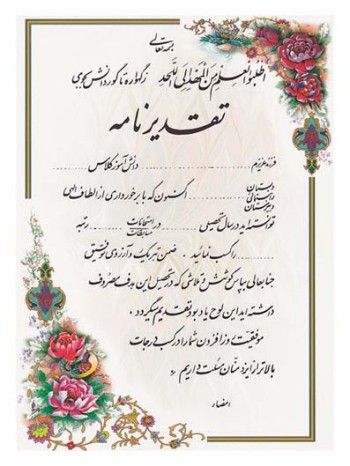 بسمه تعالی
اطلبوا العلم من المهد الی اللحد زگهواره تا گور دانش بجوی
تقدیرنامه
فرزند عزیزم .................... دانش آموز کلاس ....................
دبستان
راهنمائی .................... اکنون که با برخورداری از الطاف الهی
دبیرستان
توانسته اید در سال تحصیلی .................... در امتحانات مسابقات .................... رتبه
.................... را کسب نمائید . ضمن تبریک و آرزوی توفیق
جنابعالی بپاس کوشش و تلاش که در تحصیل این هدف مصروف
داشته اید این لوح یادبود تقدیم میگردد .
موفقیت روزافزون شما را در کسب درجات
بالاتر از ایزد منان مسئلت داریم
امضاء